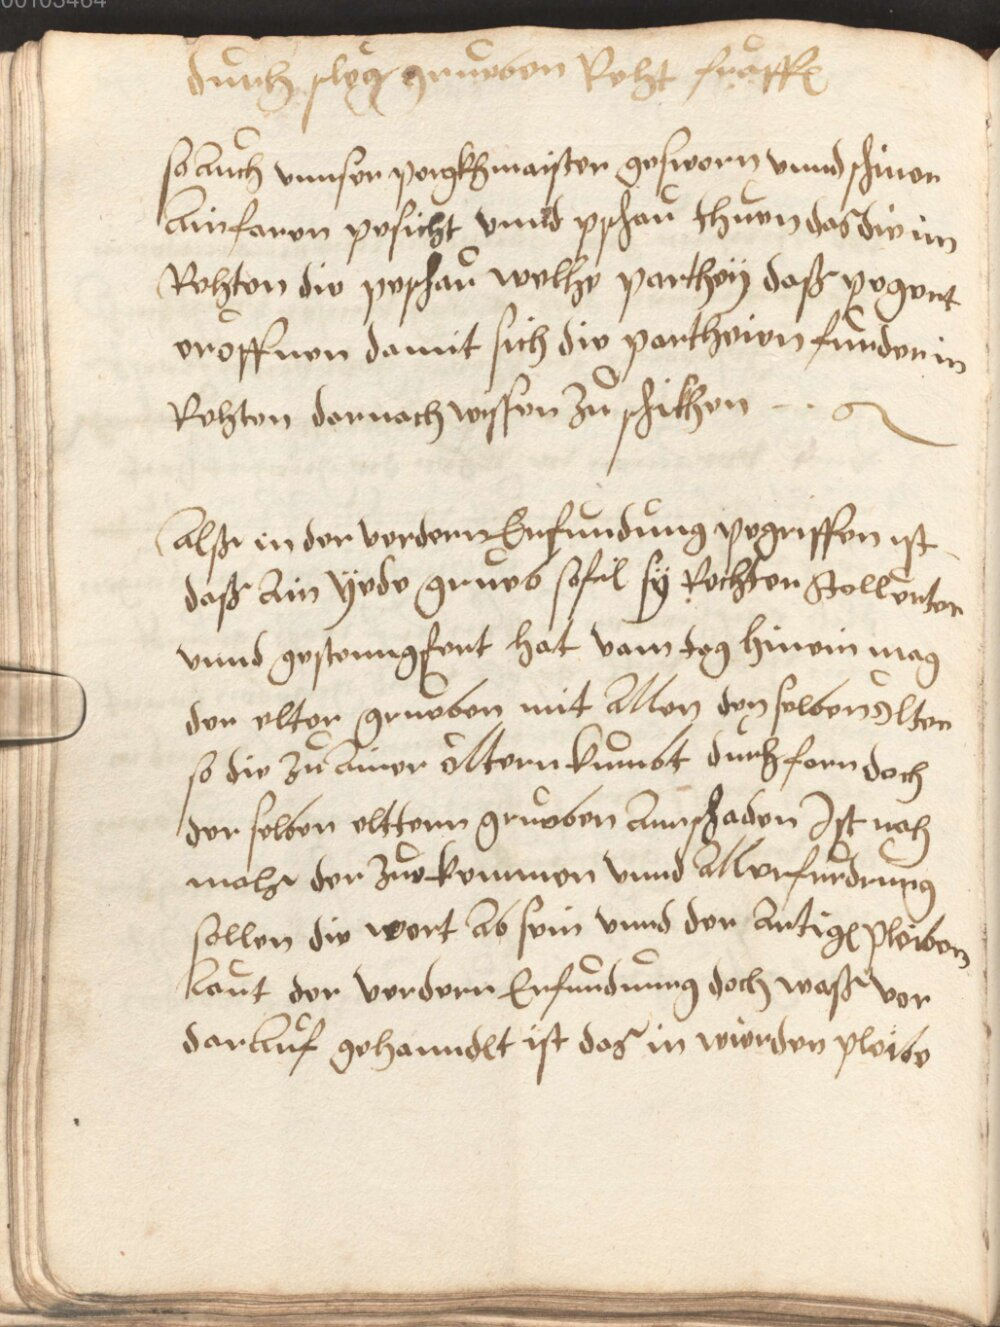 00103464
durch slege grueben Recht
so Auch vnnser pergkhmaister gesworn vnnd schiner
Ainfaren pesicht vnnd pschau thuen das die im
Rechten die peschau welhe parthey daß pegert
eröffnen damit sich die partheien furder in
Rechten darnach wissen zu schikhen
Alße in der vordern Erfindung pegriffen ist
daß Ain yede grueb sofil sy Rechter Stollenter
vnnd hat vam tag hinein mag
der elter grueben mit Allen den selben Alten
so die zu Ainer ölltern kumbt durchfarn doch
der selben elttern grueben Ann schaden Ist nach
malß der zue kemmen vnnd
sollen die wort Ab sein vnnd der Artigl pleiben
laut der vordern Erfindung doch waß vor
darauf gehanndlt ist das in wierden pleibe